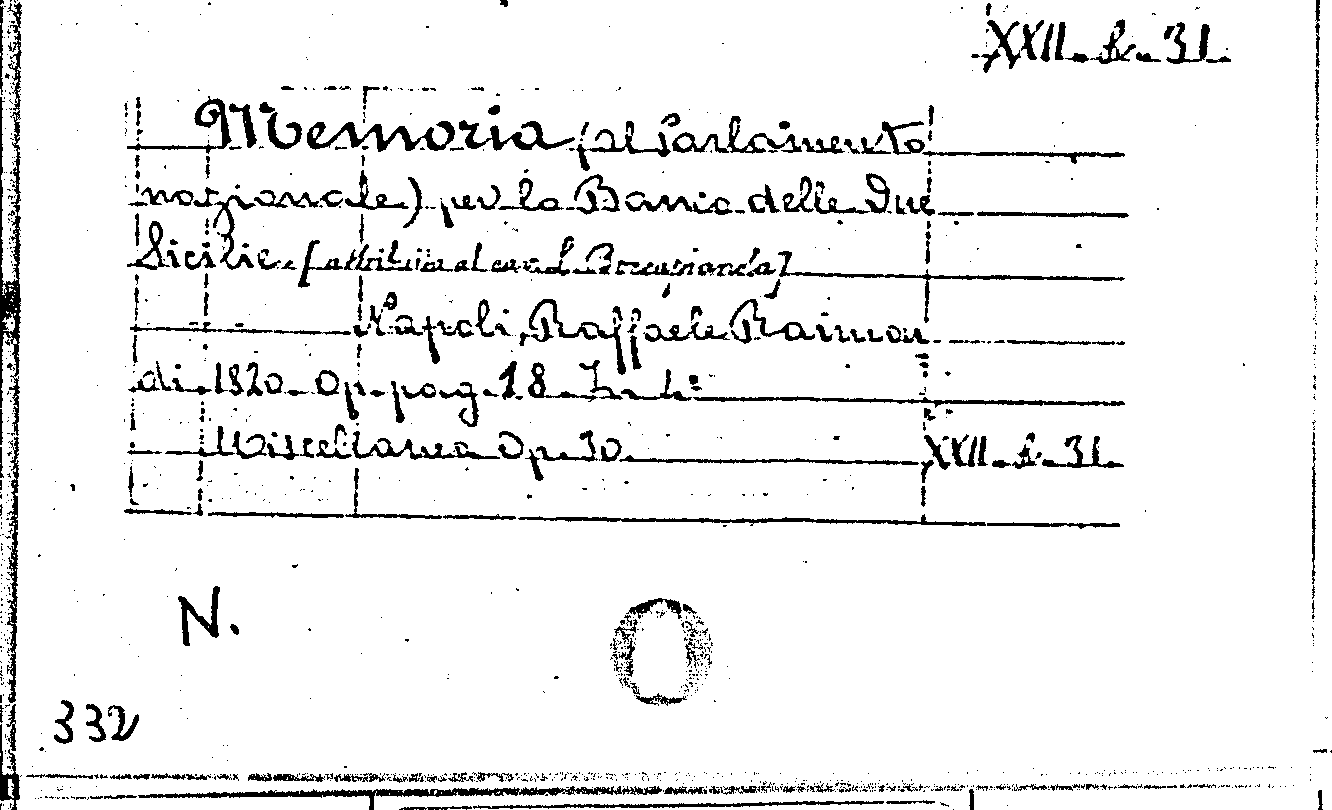 XXII. b. 31.
Memoria (al Parlamento
nazionale) per lo Banco delle Due
Sicilie. [attribuita al cav.
Napoli, Raffaele Raimon
di. 1820. Op. pag. 18. In 4º
Miscellanea Op. 30. XXII. b. 31.
N.
332